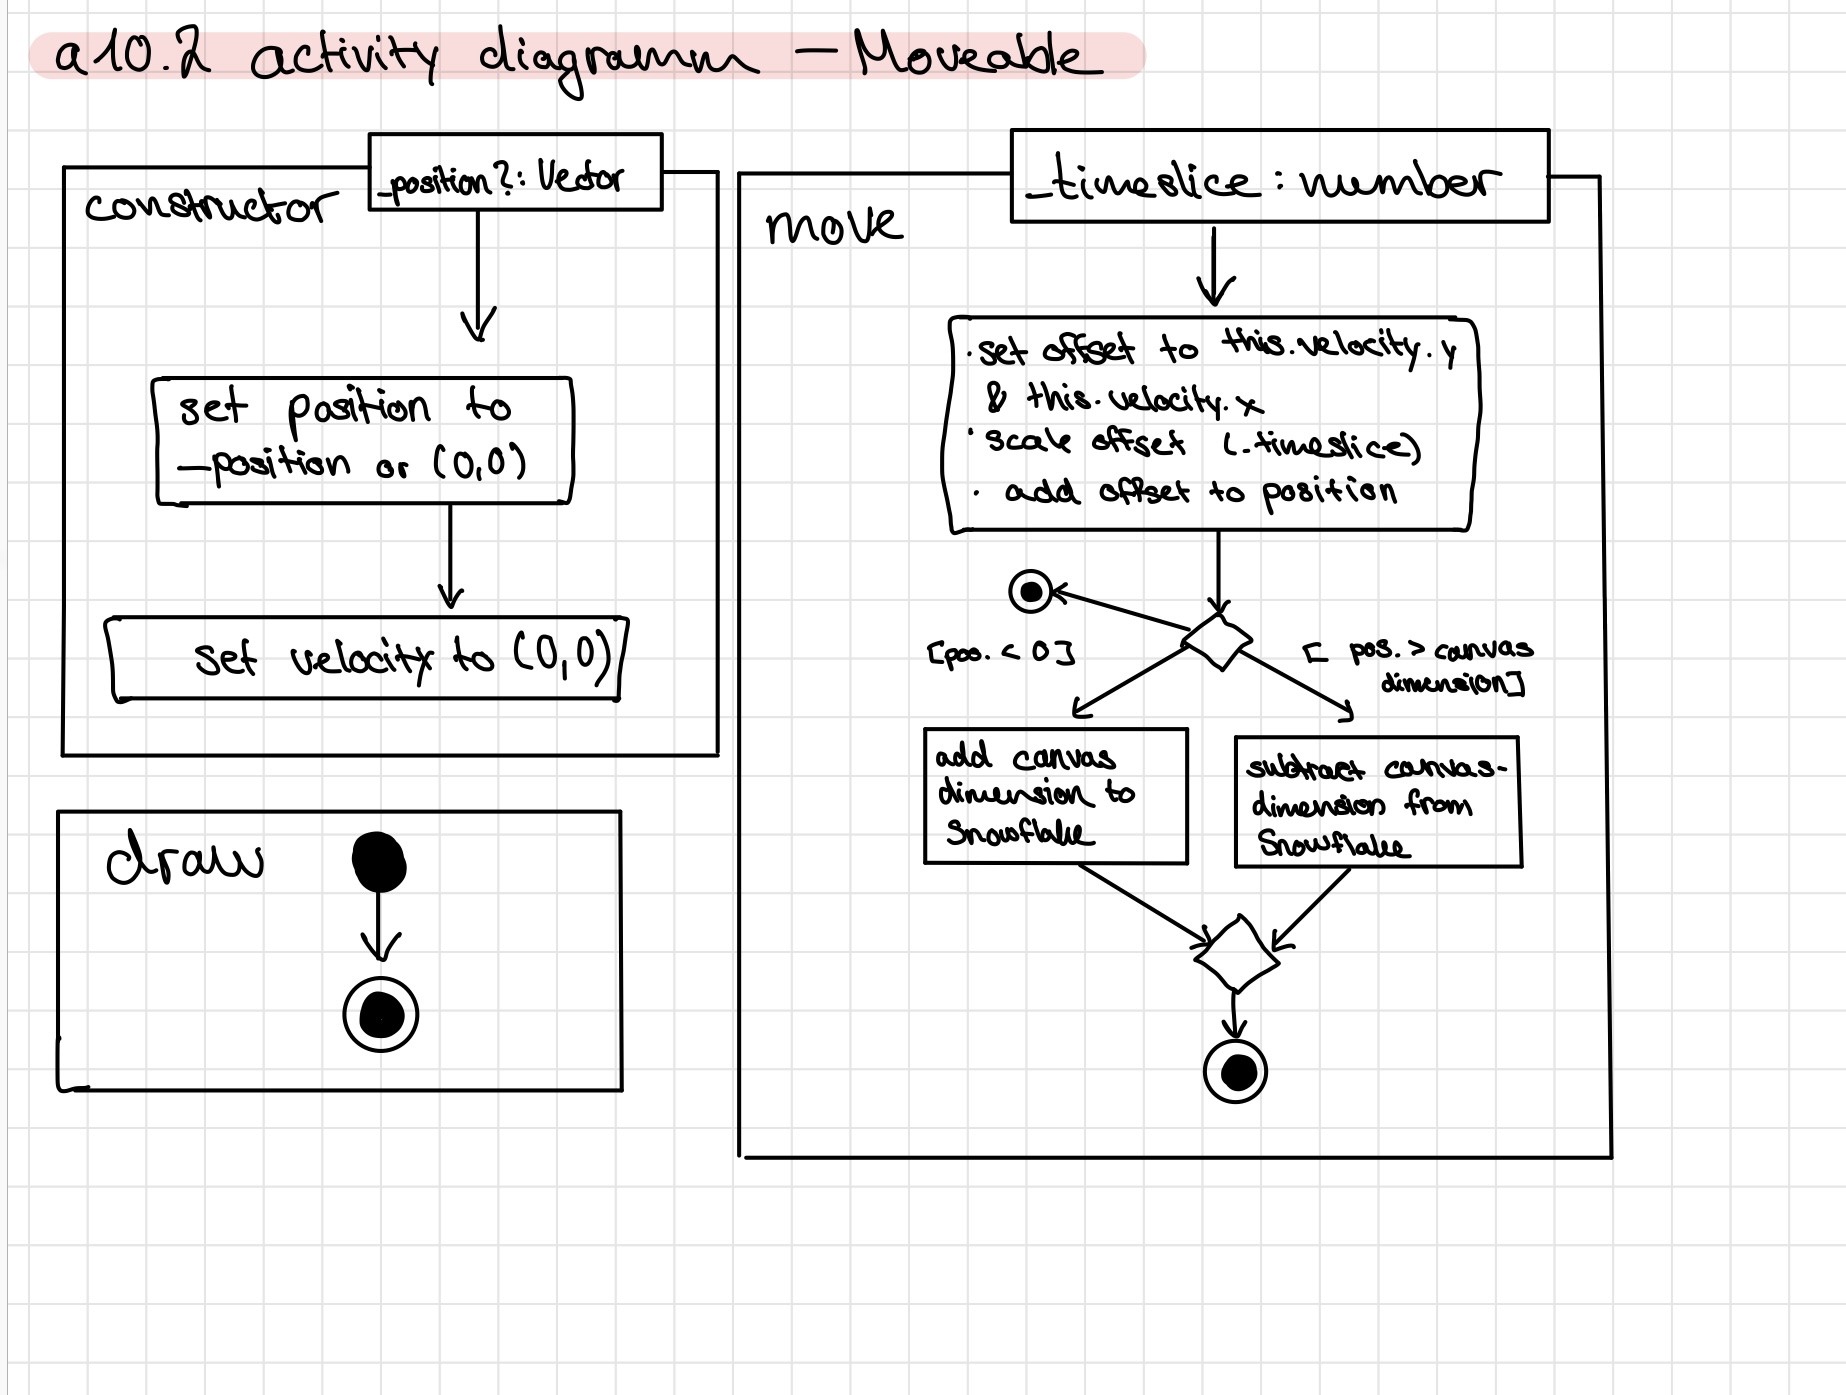 a10.2 activity diagramm - Moveable
_position?: Vector
constructor
set position to
_position or (0,0)
set velocity to (0,0)
draw
_timeslice: number
move
· set offset to this.velocity.y
& this.velocity.x
· scale offset (_timeslice)
· add offset to position
[pos. < 0]
[ pos. > canvas
dimension]
add canvas
dimension to
Snowflake
subtract canvas-
dimension from
Snowflake